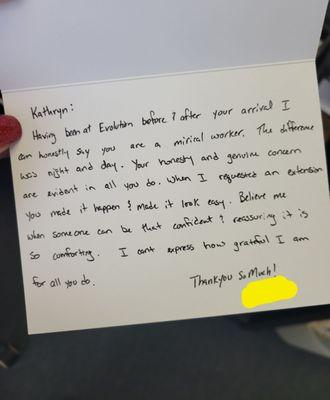 Kathryn:
Having been at Evolution before & after your arrival I
can honestly say you are a mirical worker. The difference
was night and day. Your honesty and genuine concern
are evident in all you do. When I requested an extension
you made it happen & made it look easy. Believe me
when someone can be that confident & reassuring it is
so comforting. I cant express how grateful I am
for all you do.
Thankyou So Much!